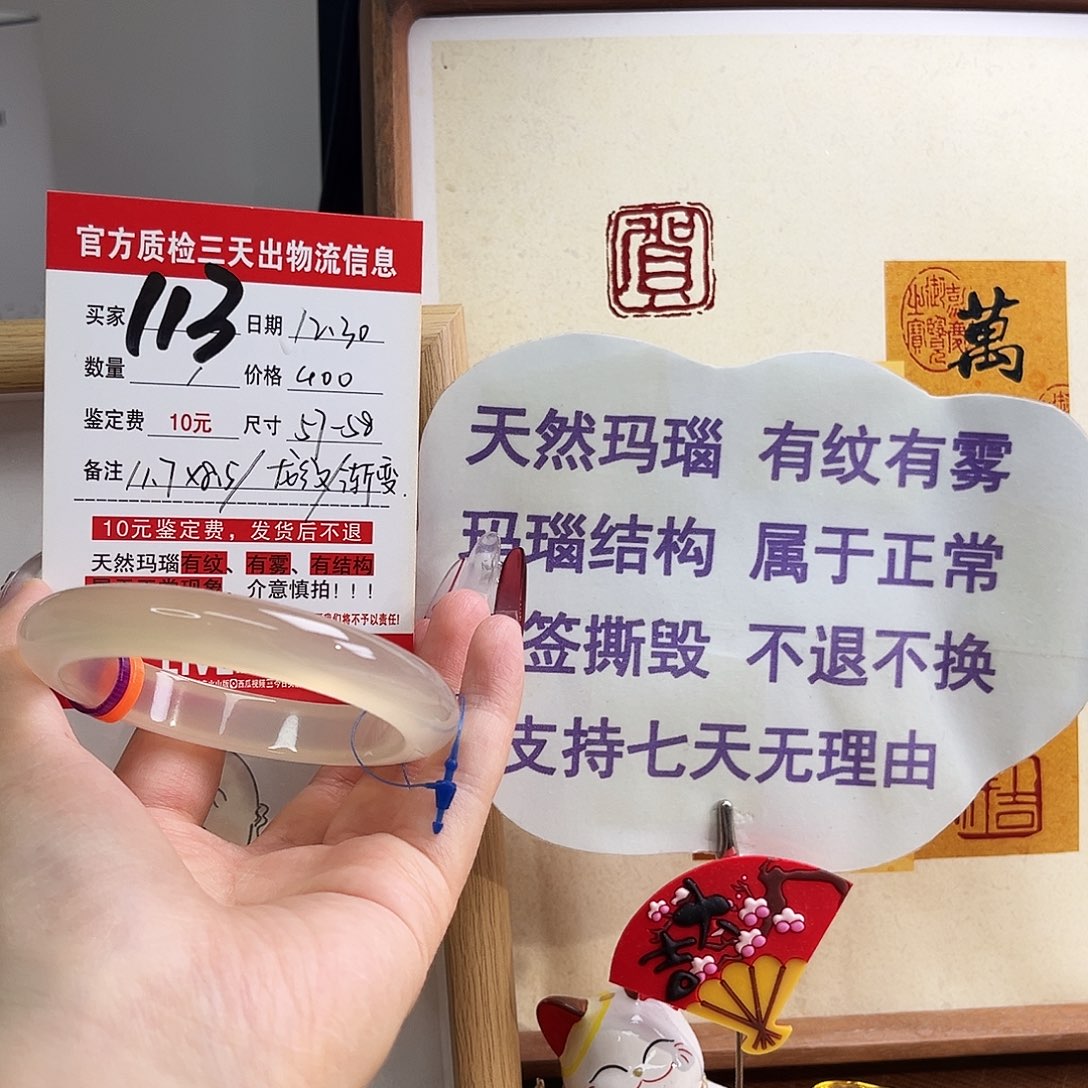 官方质检三天出物流信息
买家 113 日期 12.30
数量 1 价格 400
鉴定费 10元 尺寸 57-58
备注 11.7×8.5/龙纹/渐变
10元鉴定费，发货后不退
天然玛瑙有纹、有雾、有结构
属于正常现象，介意慎拍！！！
们将不予以责任!
LIVE
西瓜视频
賀
萬
天然玛瑙 有纹有雾
玛瑙结构 属于正常
签撕毁 不退不换
支持七天无理由
大吉